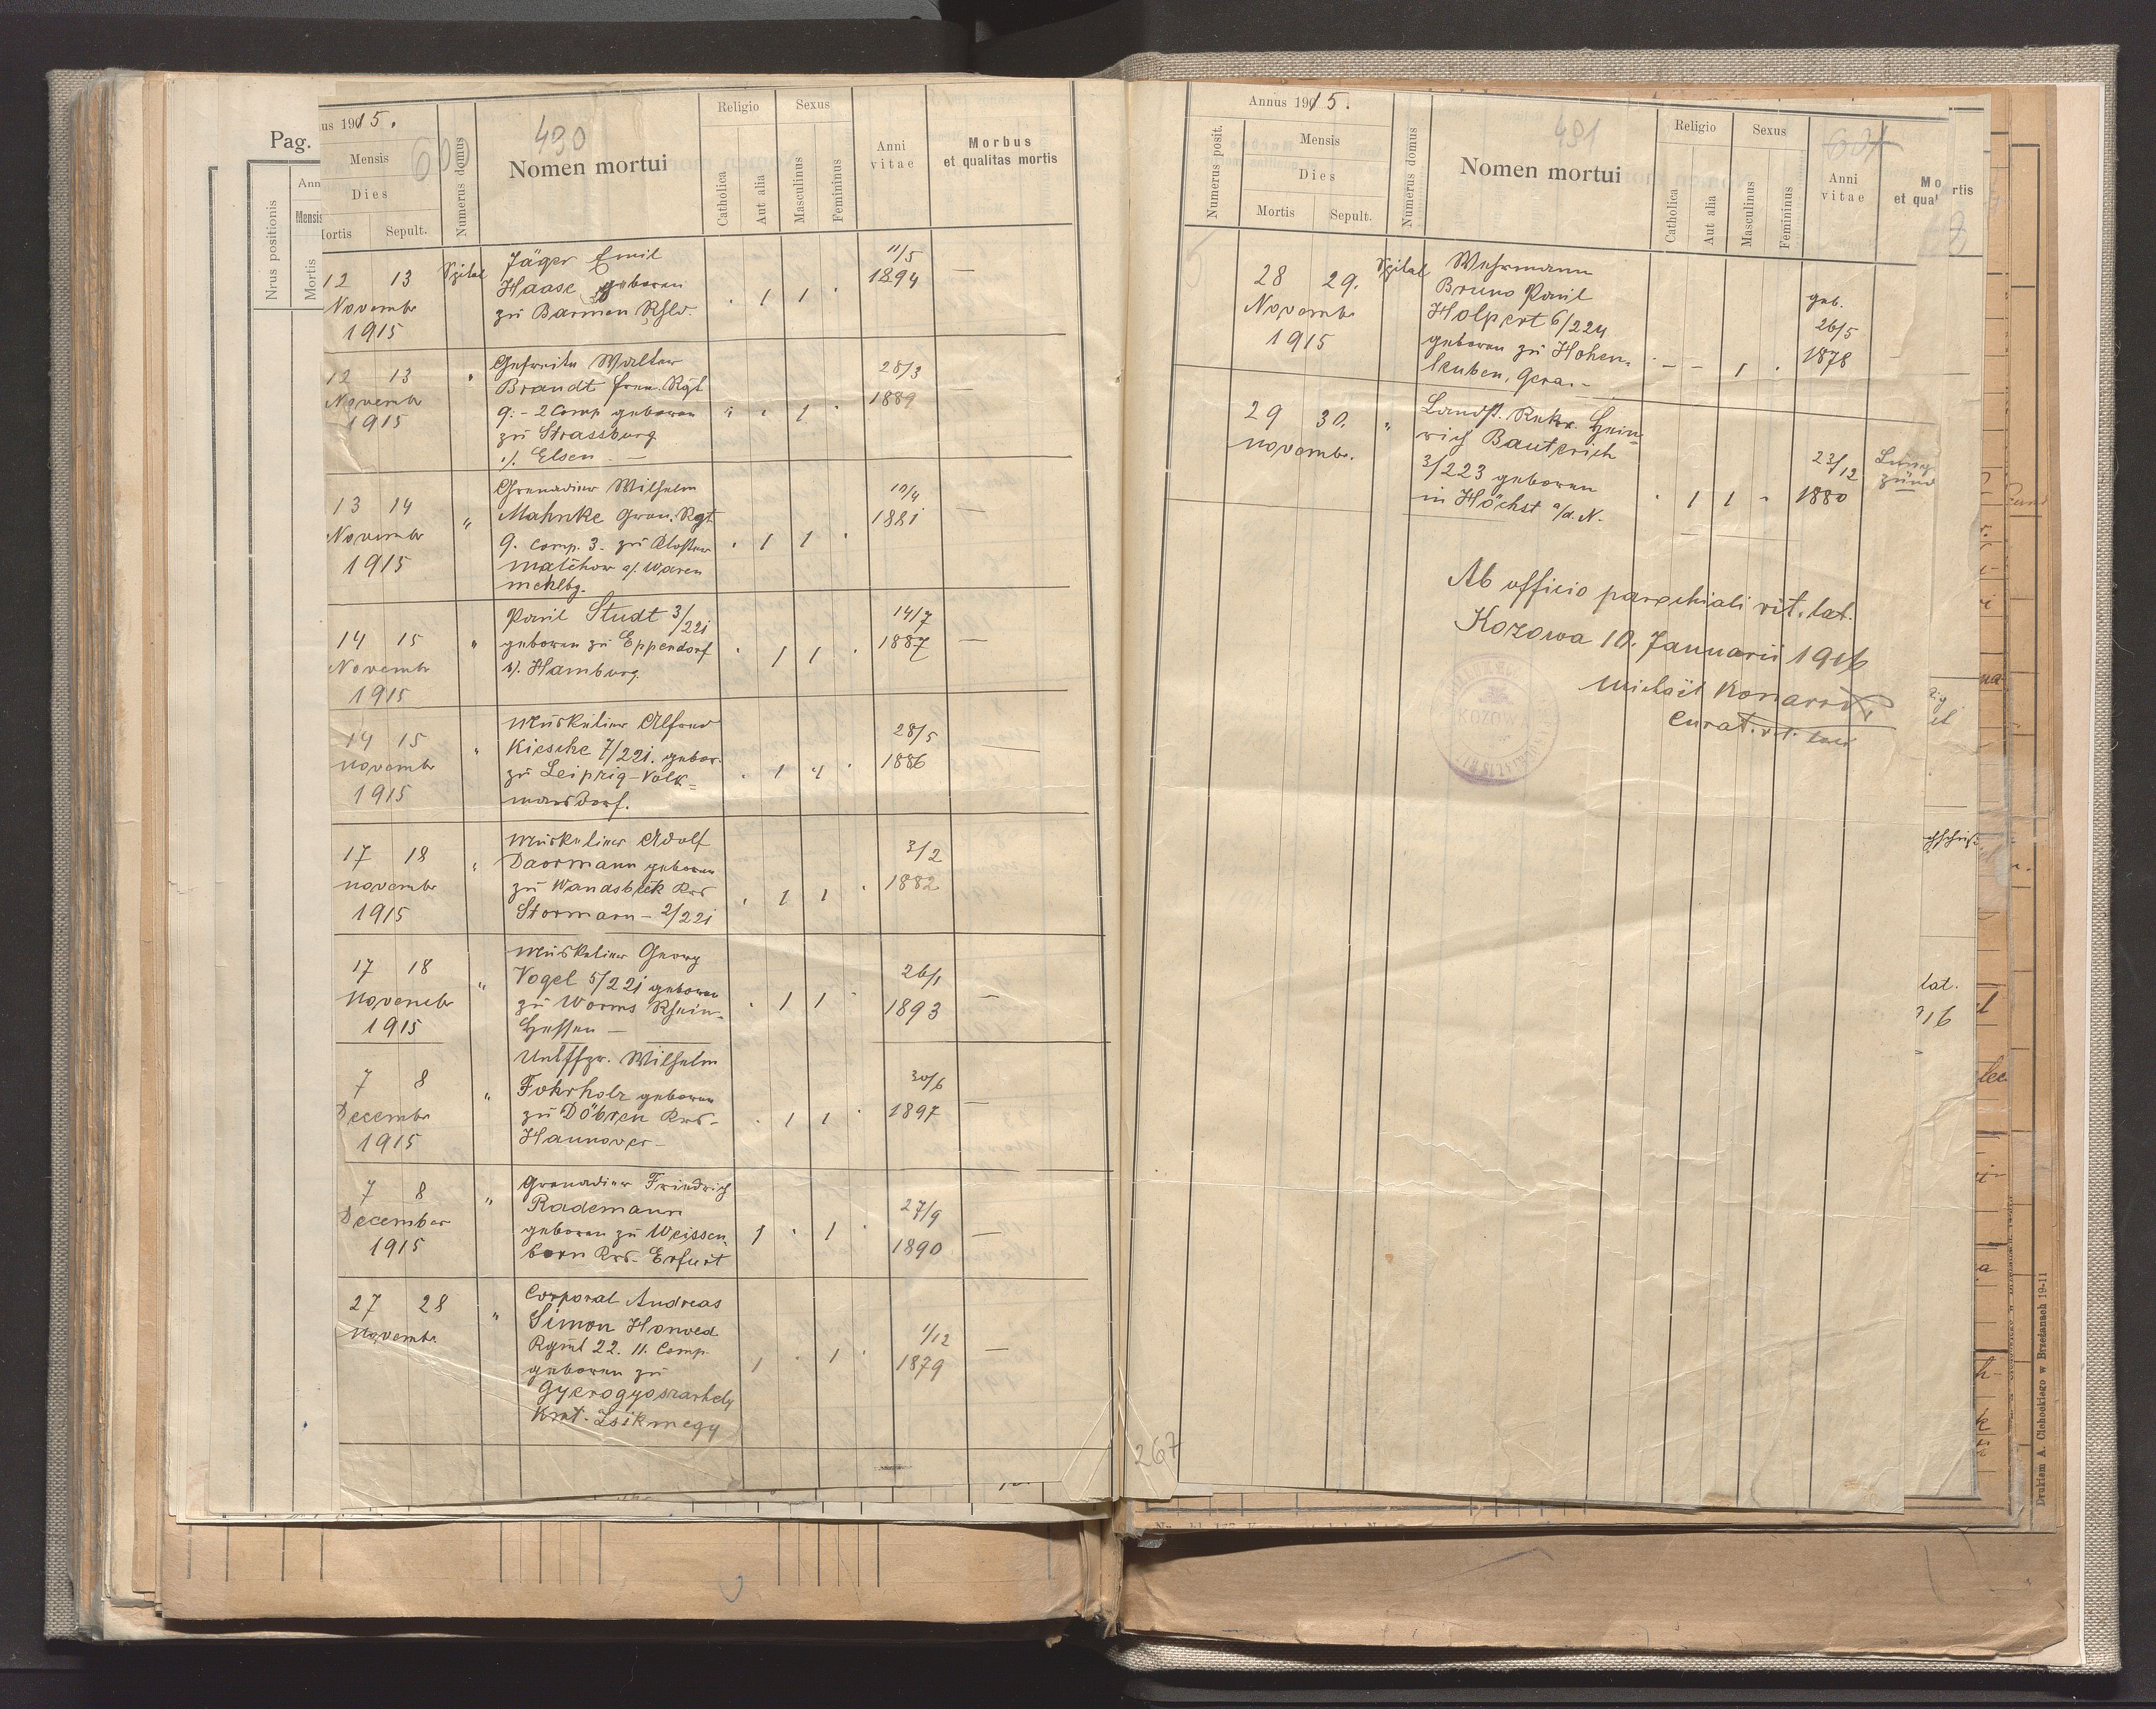 Pag.
us 1915.
490
600
Mensis
Dies
Mortis Sepult.
Numerus domus
Nomen mortui
Religio
Catholica
Aut alia
Sexus
Masculinus
Femininus
Anni vitae
Morbus
et qualitas mortis
Nrus positionis
Ann
Mensis
Mortis
12 13 Spital Jäger Emil 11/5
Haase geboren 1894 —
Novembr zu Barmen Rhld. . 1 1 .
1915
12 13 " Gefreite Walter 28/3
Novembr Brandt Gren. Rgt 1889
1915 9. - 2 Comp geboren " . 1 .
zu Strassburg
i/. Elsen. —
13 14 Grenadier Wilhelm 10/4
Novembr " Mahnke Gren. Rgt 1881 —
1915 9. Comp. 3. zu Kloster . 1 1 .
Malchow a/. Waren
Meklbg.
14 15 " Paul Studt 3/221 14/7
Novembr geboren zu Eppendorf . 1 1 . 1887 —
1915 b/. Hamburg.
14 15 Musketier Alfred 28/5
Novembr " Kiesche 7/221. gebor. 1886 —
1915 zu Leipzig-Volk= . 1 1 .
marsdorf.
17 18 Musketier Adolf 3/2
Novembr " Daormann geboren 1882
1915 zu Wandsbek Krs . 1 1 .
Stormarn - 2/221
17 18 Musketier Georg 26/1
Novembr " Vogel 5/221 geboren 1893 —
1915 zu Worms Rhein- . 1 1 .
Hessen —
Untffzr. Wilhelm
7 8 " Fohrholz geboren 30/6
Decembr zu Döhren Krs- . 1 1 . 1897 —
1915 Hannover-
7 8 Grenadier Friedrich
December " Rademann 27/9
1915 geboren zu Weissen- 1 . 1 . 1890 —
born Krs- Erfurt
27 28 Corporal Andreas
Novembr. " Simon Honved 1/12
Rgmt 22. 11. Comp 1 . 1 . 1879 —
geboren zu
Gyerogyoszarhely
Kmt. Zsikmegy
Annus 1915.
491
601
Numerus posit.
Mensis
Dies
Mortis Sepult.
Numerus domus
Nomen mortui
Religio
Catholica
Aut alia
Sexus
Masculinus
Femininus
Anni vitae
Mo rtis
et qua
28 29. Spital Wehrmann
Novembr Bruno Paul geb.
1915 Holpert 6/224 26/5
geboren zu Hohen- . - - 1 . 1878 —
leuben, Gera. -
29 30. " Landst. Rekr. Hein=
Novembr. rich Bauterich 23/12 Lung
3/223 geboren . 1 1 " 1880 zünd
in Höchst a/d. N.
Ab officio parochiali rit. lat.
Kozowa 10. Januarii 1916
Michaël Konarski
Curat. rit. lat.
KOZOWA
267
lat.
916
Drukiem A. Cichockiego w Brzeżanach 19-11